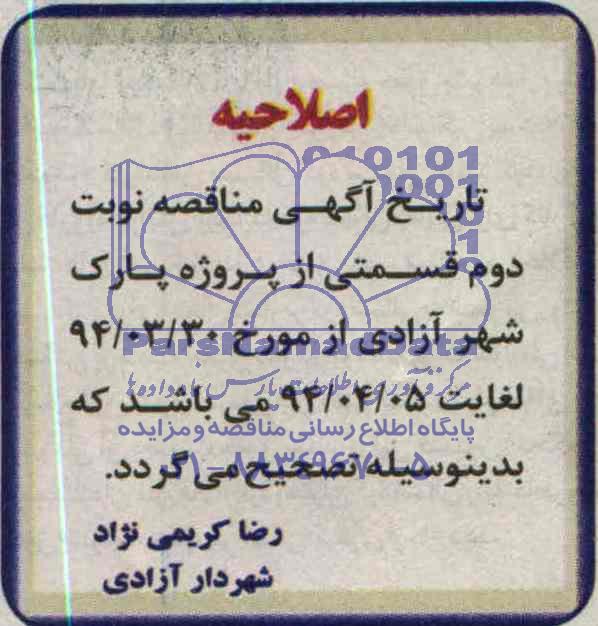 اصلاحیه
تاریخ آگهی مناقصه نوبت
دوم قسمتی از پروژه پارک
شهر آزادی از مورخ ۹۴/۰۳/۳۰
لغایت ۹۴/۰۴/۰۵ می باشد که
بدینوسیله تصحیح می گردد.
رضا کریمی نژاد
شهردار آزادی
ParsNamadData
مرکز فرآوری اطلاعات پارس نماد داده ها
پایگاه اطلاع رسانی مناقصه و مزایده
۰۲۱-۸۸۳۴۹۶۷۰-۵